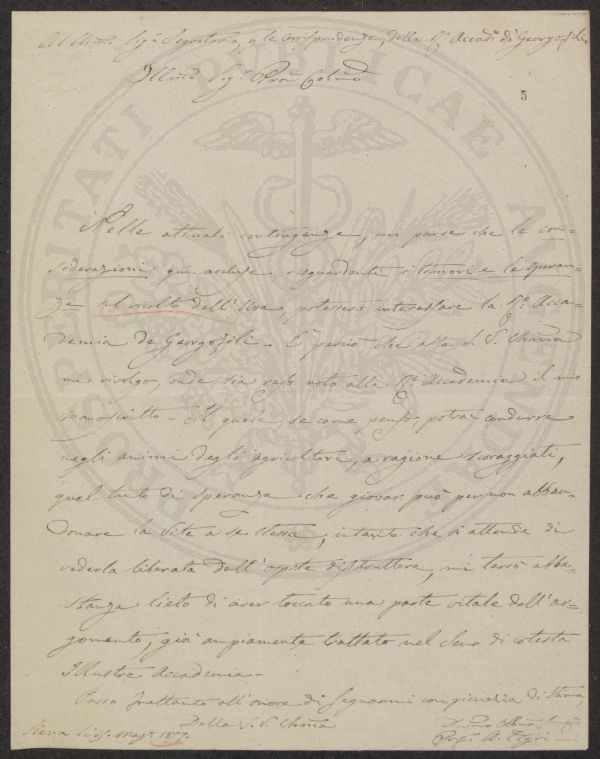 Al Chmo Sig.r Segretario, p le corrispondenze, della R. Accad.a de' Georgofili
Illmo Sig.r Prōn Colmo
5
Nelle attuali contingenze, mi parve che le con-
siderazioni qui accluse risguardanti i timori e le speran-
ze sul ricolto dell'Uva, potessero interessare la R.a Acca-
demia de Georgofili. È perciò che alla di S. Chma
mi rivolgo, onde sia reso noto alla R.a Accademia il mio
manoscritto. Il quale, se come penso, potrà condurre
negli animi degli agricoltori, a ragione scoraggiati,
quel tanto di speranza che giovar può per non abban-
donare la Vite a se stessa, intanto che si attende di
vederla liberata dall'ospite distruttore, mi terrò abba-
stanza lieto di aver toccato una parte vitale dell'ar-
gomento, già ampiamente trattato nel seno di cotesta
Illustre Accademia.
Passo frattanto all'onore di segnarmi con pienezza di stima,
Della S. V. Chma
Siena li Mag.o
Prof. A. Tigri
PROSPERITATI PUBLICAE AUGENDAE